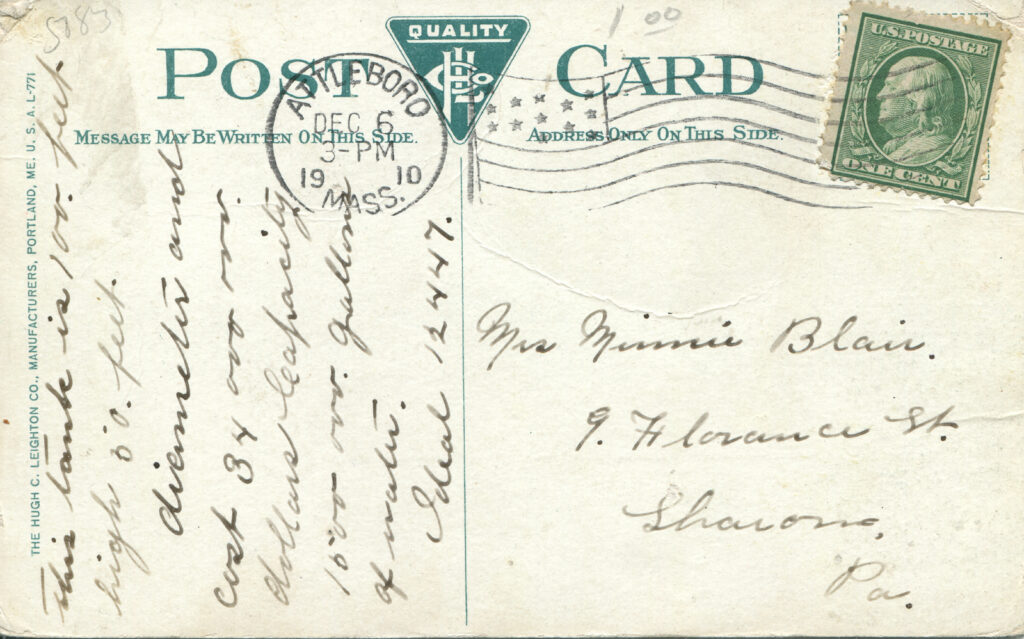 5783
1 00
QUALITY
H C L Co
POST CARD
MESSAGE MAY BE WRITTEN ON THIS SIDE.
ADDRESS ONLY ON THIS SIDE.
ATTLEBORO
DEC 6
3-PM
19 10
MASS.
U.S. POSTAGE
ONE CENT
THE HUGH C. LEIGHTON CO., MANUFACTURERS, PORTLAND, ME. U. S. A. L-771
This tank is 100. feet
high 50. feet.
diameter and
cost 34 000 000.
dollars Capacity
1500 000. gallons
of water.
Ideal 12447.
Mrs Minnie Blair.
9. Florance St.
Sharon,
Pa.